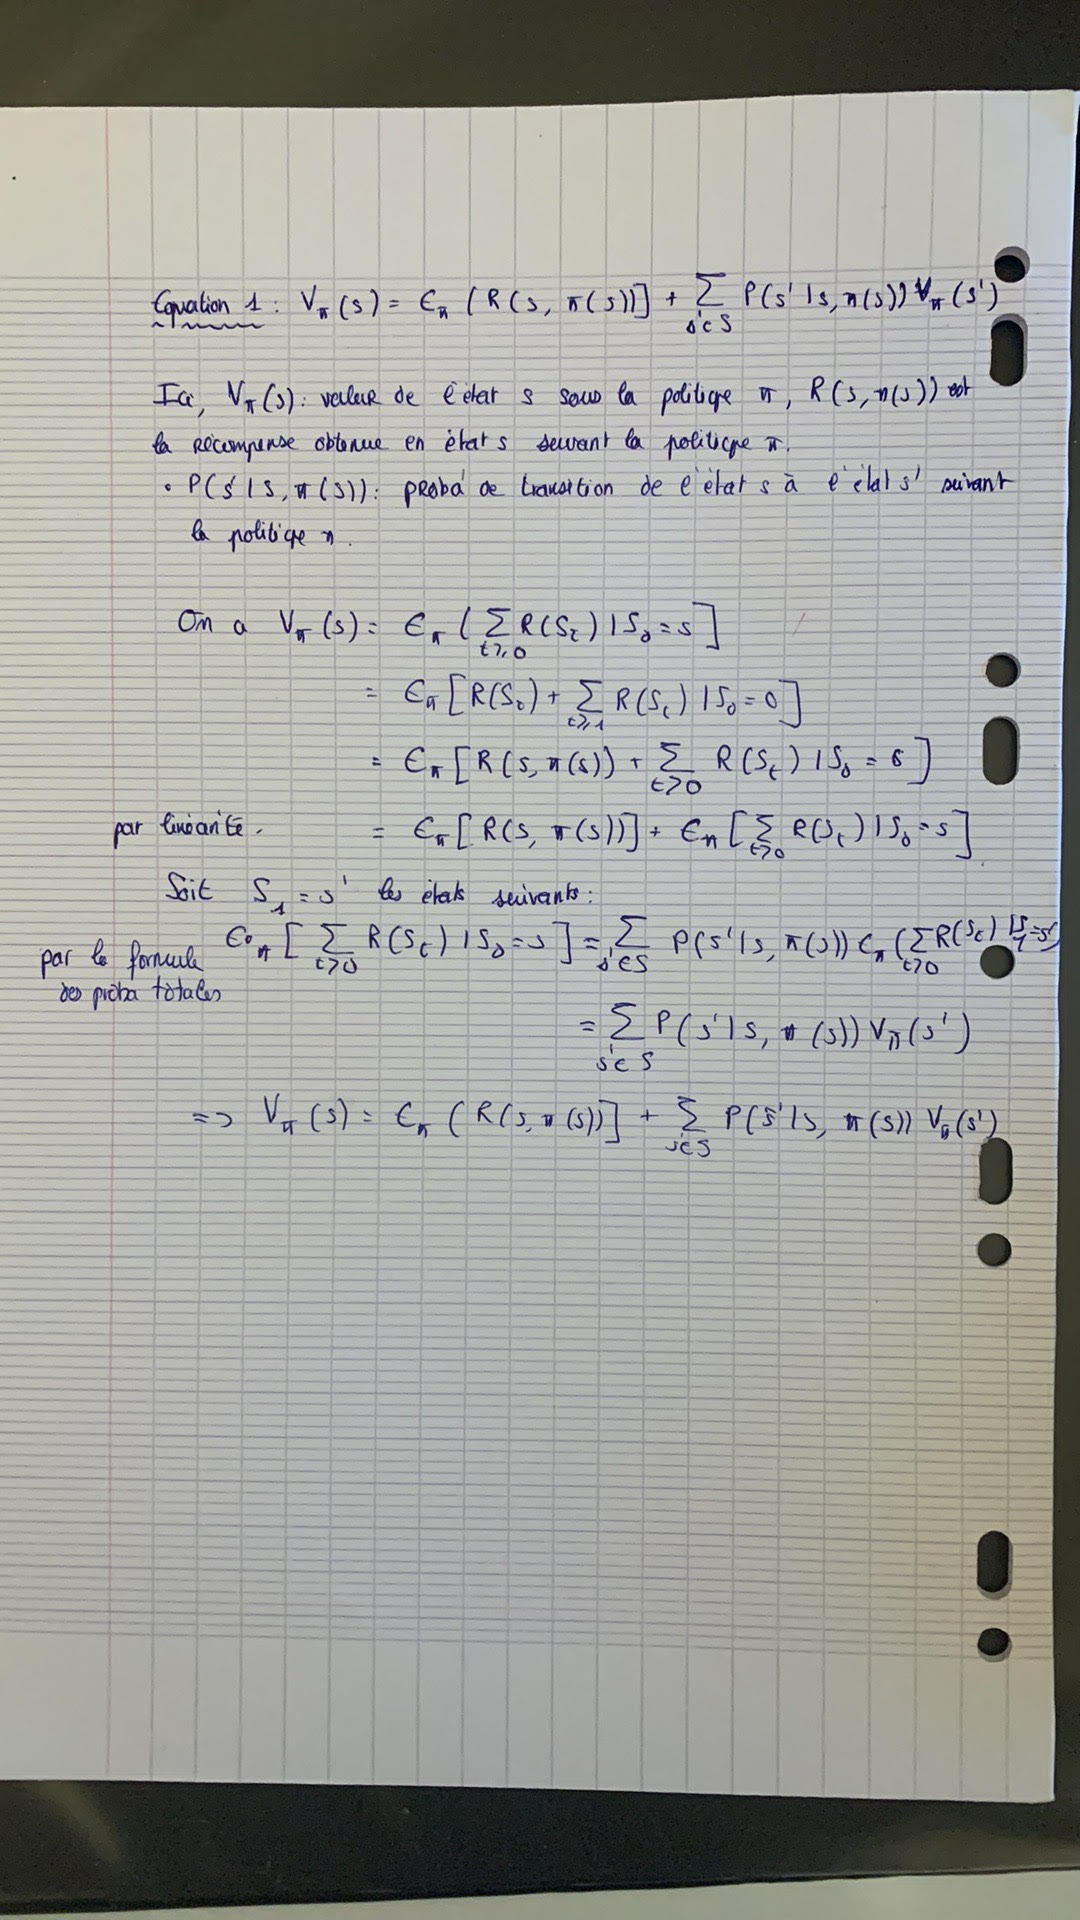 Equation 1 : Vπ(s) = Eπ (R(s, π(s))] + Σ s'∈S P(s'|s, π(s)) Vπ(s')
Ici, Vπ(s) : valeur de l'état s sous la politique π, R(s, π(s)) est
la récompense obtenue en état s suivant la politique π.
• P(s'|s, π(s)) : proba de transition de l'état s à l'état s' suivant
la politique π.
On a Vπ(s) = Eπ ( Σ t≥0 R(St) | S0 = s ]
= Eπ [ R(S0) + Σ t≥1 R(St) | S0 = 0 ]
= Eπ [ R(s, π(s)) + Σ t>0 R(St) | S0 = s ]
par linéarité. = Eπ [ R(s, π(s))] + Eπ [ Σ t>0 R(St) | S0 = s ]
Soit S1 = s' les états suivants :
par la formule des proba totales Eπ [ Σ t>0 R(St) | S0 = s ] = Σ s'∈S P(s'|s, π(s)) Eπ ( Σ t>0 R(St) | S1 = s'
= Σ s'∈S P(s'|s, π(s)) Vπ(s')
=> Vπ(s) = Eπ (R(s, π(s))] + Σ s'∈S P(s'|s, π(s)) Vπ(s')